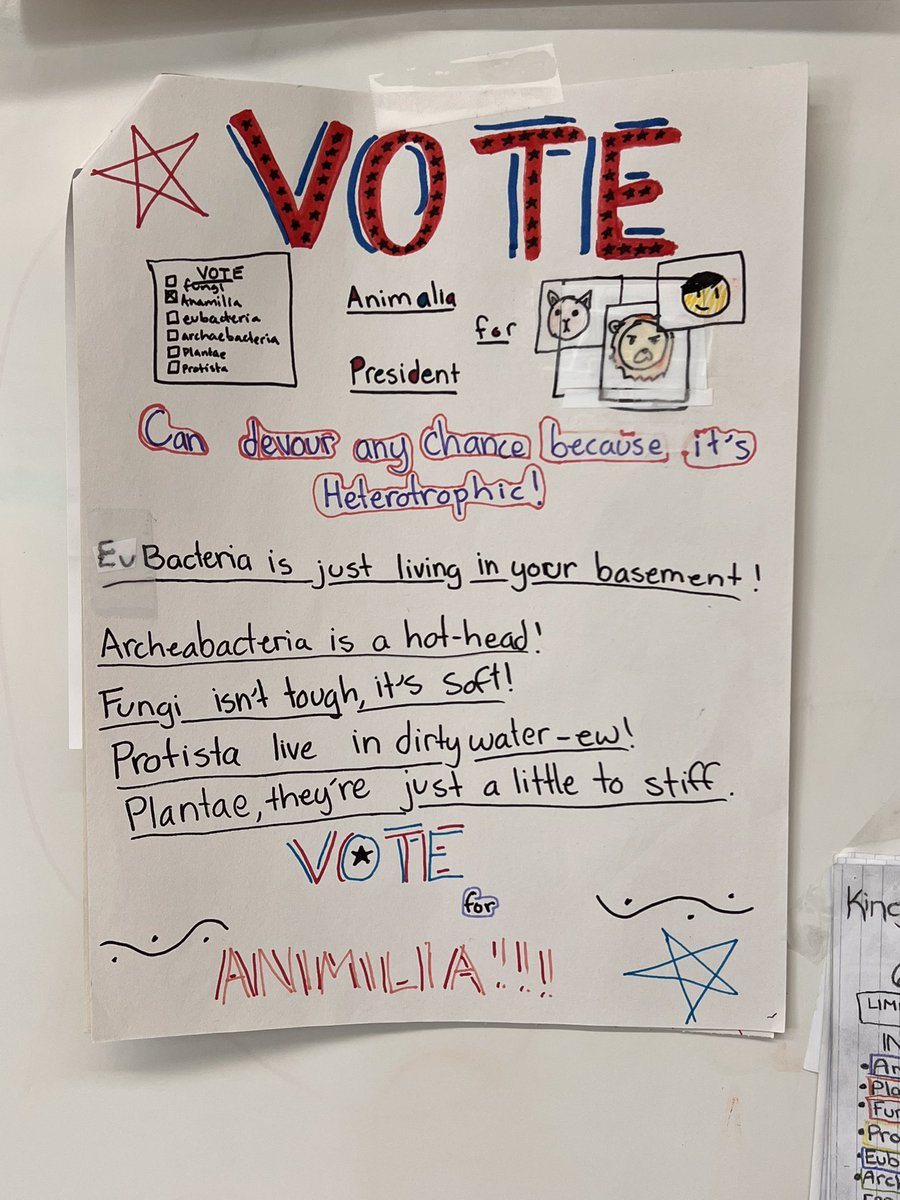 VOTE
VOTE
fungi
Anamilia
eubacteria
archaebacteria
Plantae
Protista
Animalia
for
President
Can devour any Chance because it's
Heterotrophic!
EuBacteria is just living in your basement!
Archeabacteria is a hot-head!
Fungi isn't tough, it's soft!
Protista live in dirty water-ew!
Plantae, they're just a little to stiff.
VOTE
for
ANIMILIA!!!!